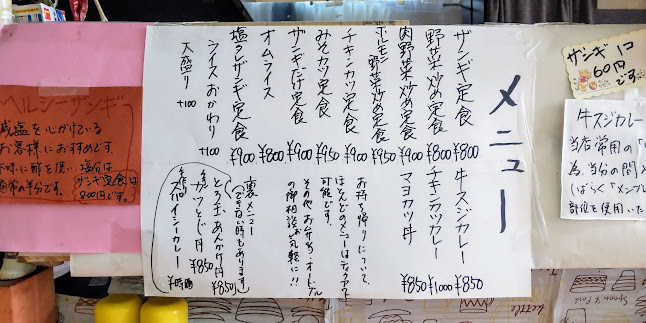 メニュー
ザンギ定食 ¥800
野菜炒め定食 ¥800
肉野菜炒め定食
ホルモン野菜炒め定食 ¥950
チキンカツ定食 ¥900
みそカツ定食 ¥950
ザンギだけ定食 ¥900
オムライス ¥800
塩タレザンギ定食 ¥900
ライスおかわり +100
大盛り +100
牛スジカレー ¥850
チキンカツカレー ¥1000
マヨカツ丼 ¥850
お持ち帰りについて、
ほとんどのメニューはテイクアウト
可能です。
その他お弁当・オードブル
の御相談お気軽に!!
裏メニュー
(できない時もあります)
とり玉あんかけ丼 ¥850
チキンカツとじ丼 ¥850
スパイシーカレー ¥時価
ヘルシーザンギ
減塩を心がけている
お客様におすすめです
味に酢を使い、塩分は
通常の半分です。
ザンギ定食は
800円です。
ザンギ1コ
60円
です
牛スジカレー
当店常用の
為、当分の間
しばらく
部位を使用いた